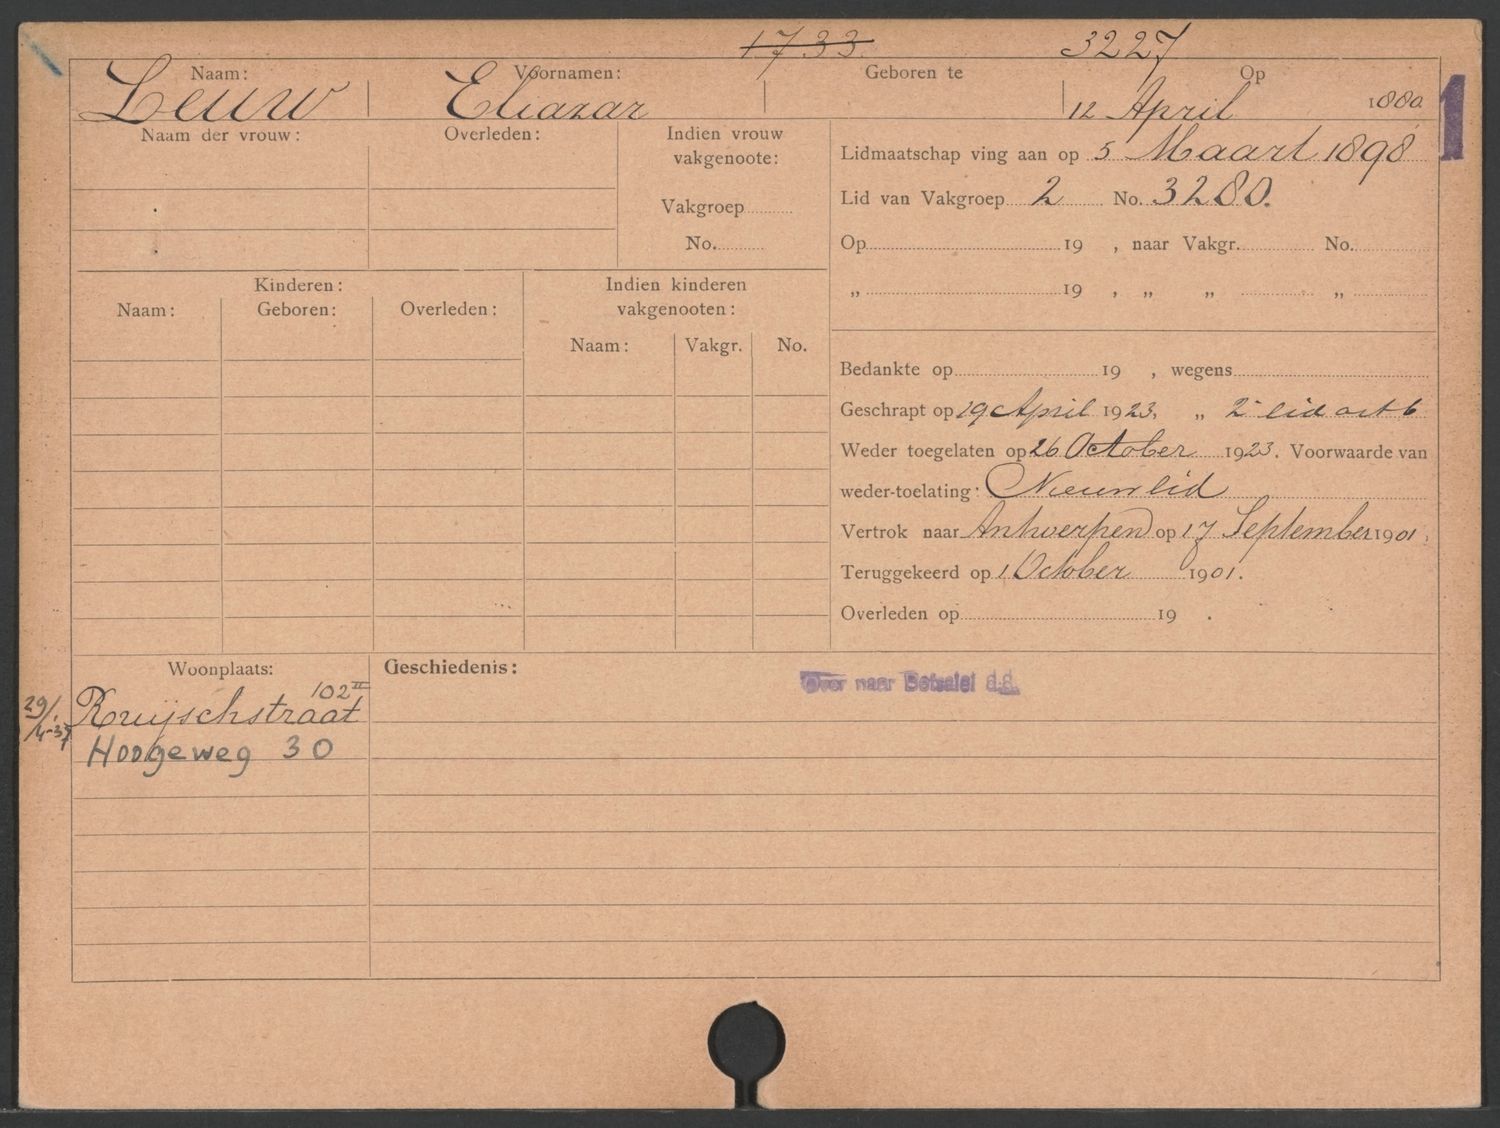 1733 3227
Naam: Voornamen: Geboren te Op
Leuw Eleazar 12 April 1880
1
Naam der vrouw: Overleden: Indien vrouw vakgenoote:
Vakgroep
No.
Lidmaatschap ving aan op 5 Maart 1898
Lid van Vakgroep 2 No. 3280.
Op 19 , naar Vakgr. No.
„ 19 , „ „ „
Kinderen:
Naam: Geboren: Overleden:
Indien kinderen vakgenooten:
Naam: Vakgr. No.
Bedankte op 19 , wegens
Geschrapt op 19 April 1923, „ 2e lid art 6
Weder toegelaten op 26 October 1923. Voorwaarde van
weder-toelating: Nieuw lid
Vertrok naar Antwerpen op 17 September 1901,
Teruggekeerd op 1 October 1901.
Overleden op 19 .
Woonplaats: Geschiedenis:
Over naar Betsalel d.d.
102 II
Ruijschstraat
29/4-37 Hoogeweg 30